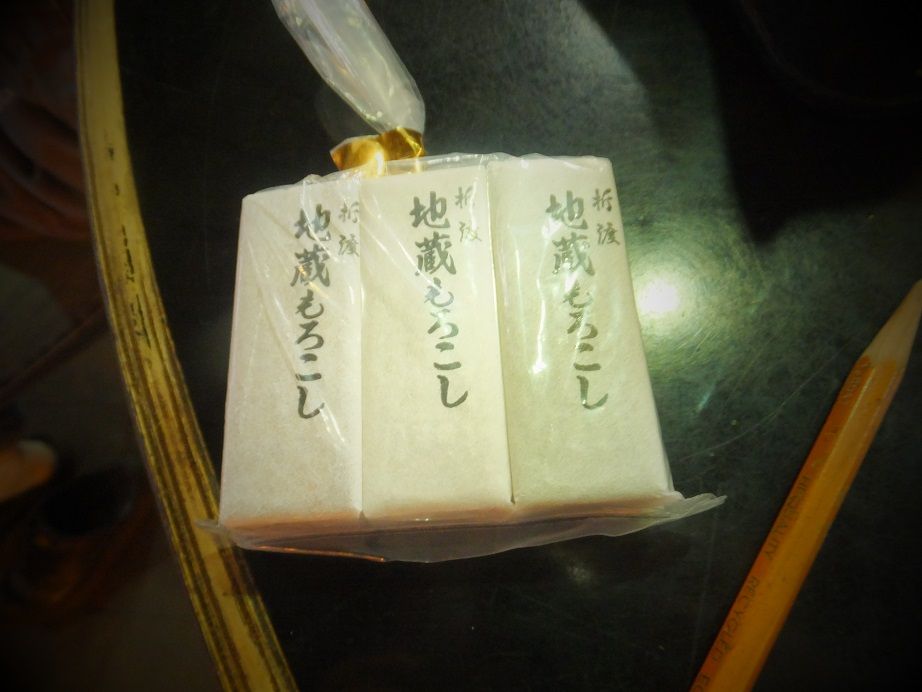 折渡
地蔵もろこし
折渡
地蔵もろこし
折渡
地蔵もろこし
RECYCLED